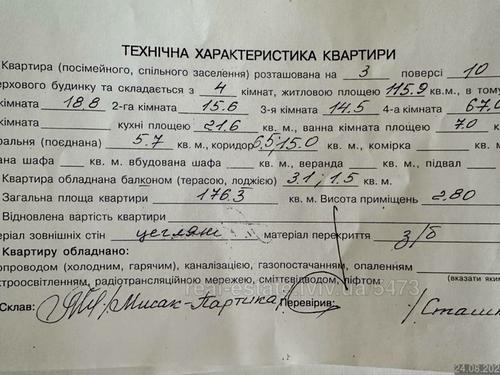 ТЕХНІЧНА ХАРАКТЕРИСТИКА КВАРТИРИ
Квартира (посімейного, спільного заселення) розташована на 3 поверсі 10
ерхового будинку та складається з 4 кімнат, житловою площею 115.9 кв.м., в тому
кімната 18.8 2-га кімната 15.6 3-я кімната 14.5 4-а кімната 67.0
кімната кухні площею 21.6 кв. м., ванна кімната площею 7.0 к
ральня (поєднана) 5.7 кв. м., коридор 6.5; 15.0 кв. м., комірка кв. м.
ана шафа кв. м. вбудована шафа кв. м., веранда кв. м., підвал
Квартира обладнана балконом (терасою, лоджією) 3.1; 1.5 кв. м.
Загальна площа квартири 176.3 кв. м. Висота приміщень 2.80
Відновлена вартість квартири
еріал зовнішніх стін цегляні матеріал перекриття з/б
Квартиру обладнано:
опроводом (холодним, гарячим), каналізацією, газопостачанням, опаленням
ектроосвітленням, радіотрансляційною мережею, сміттєвідводом, ліфтом
(вказати яким
Склав: Мисак-Партика Перевірив: /Сташк
real-estate.lviv.ua 5473
24.08.202